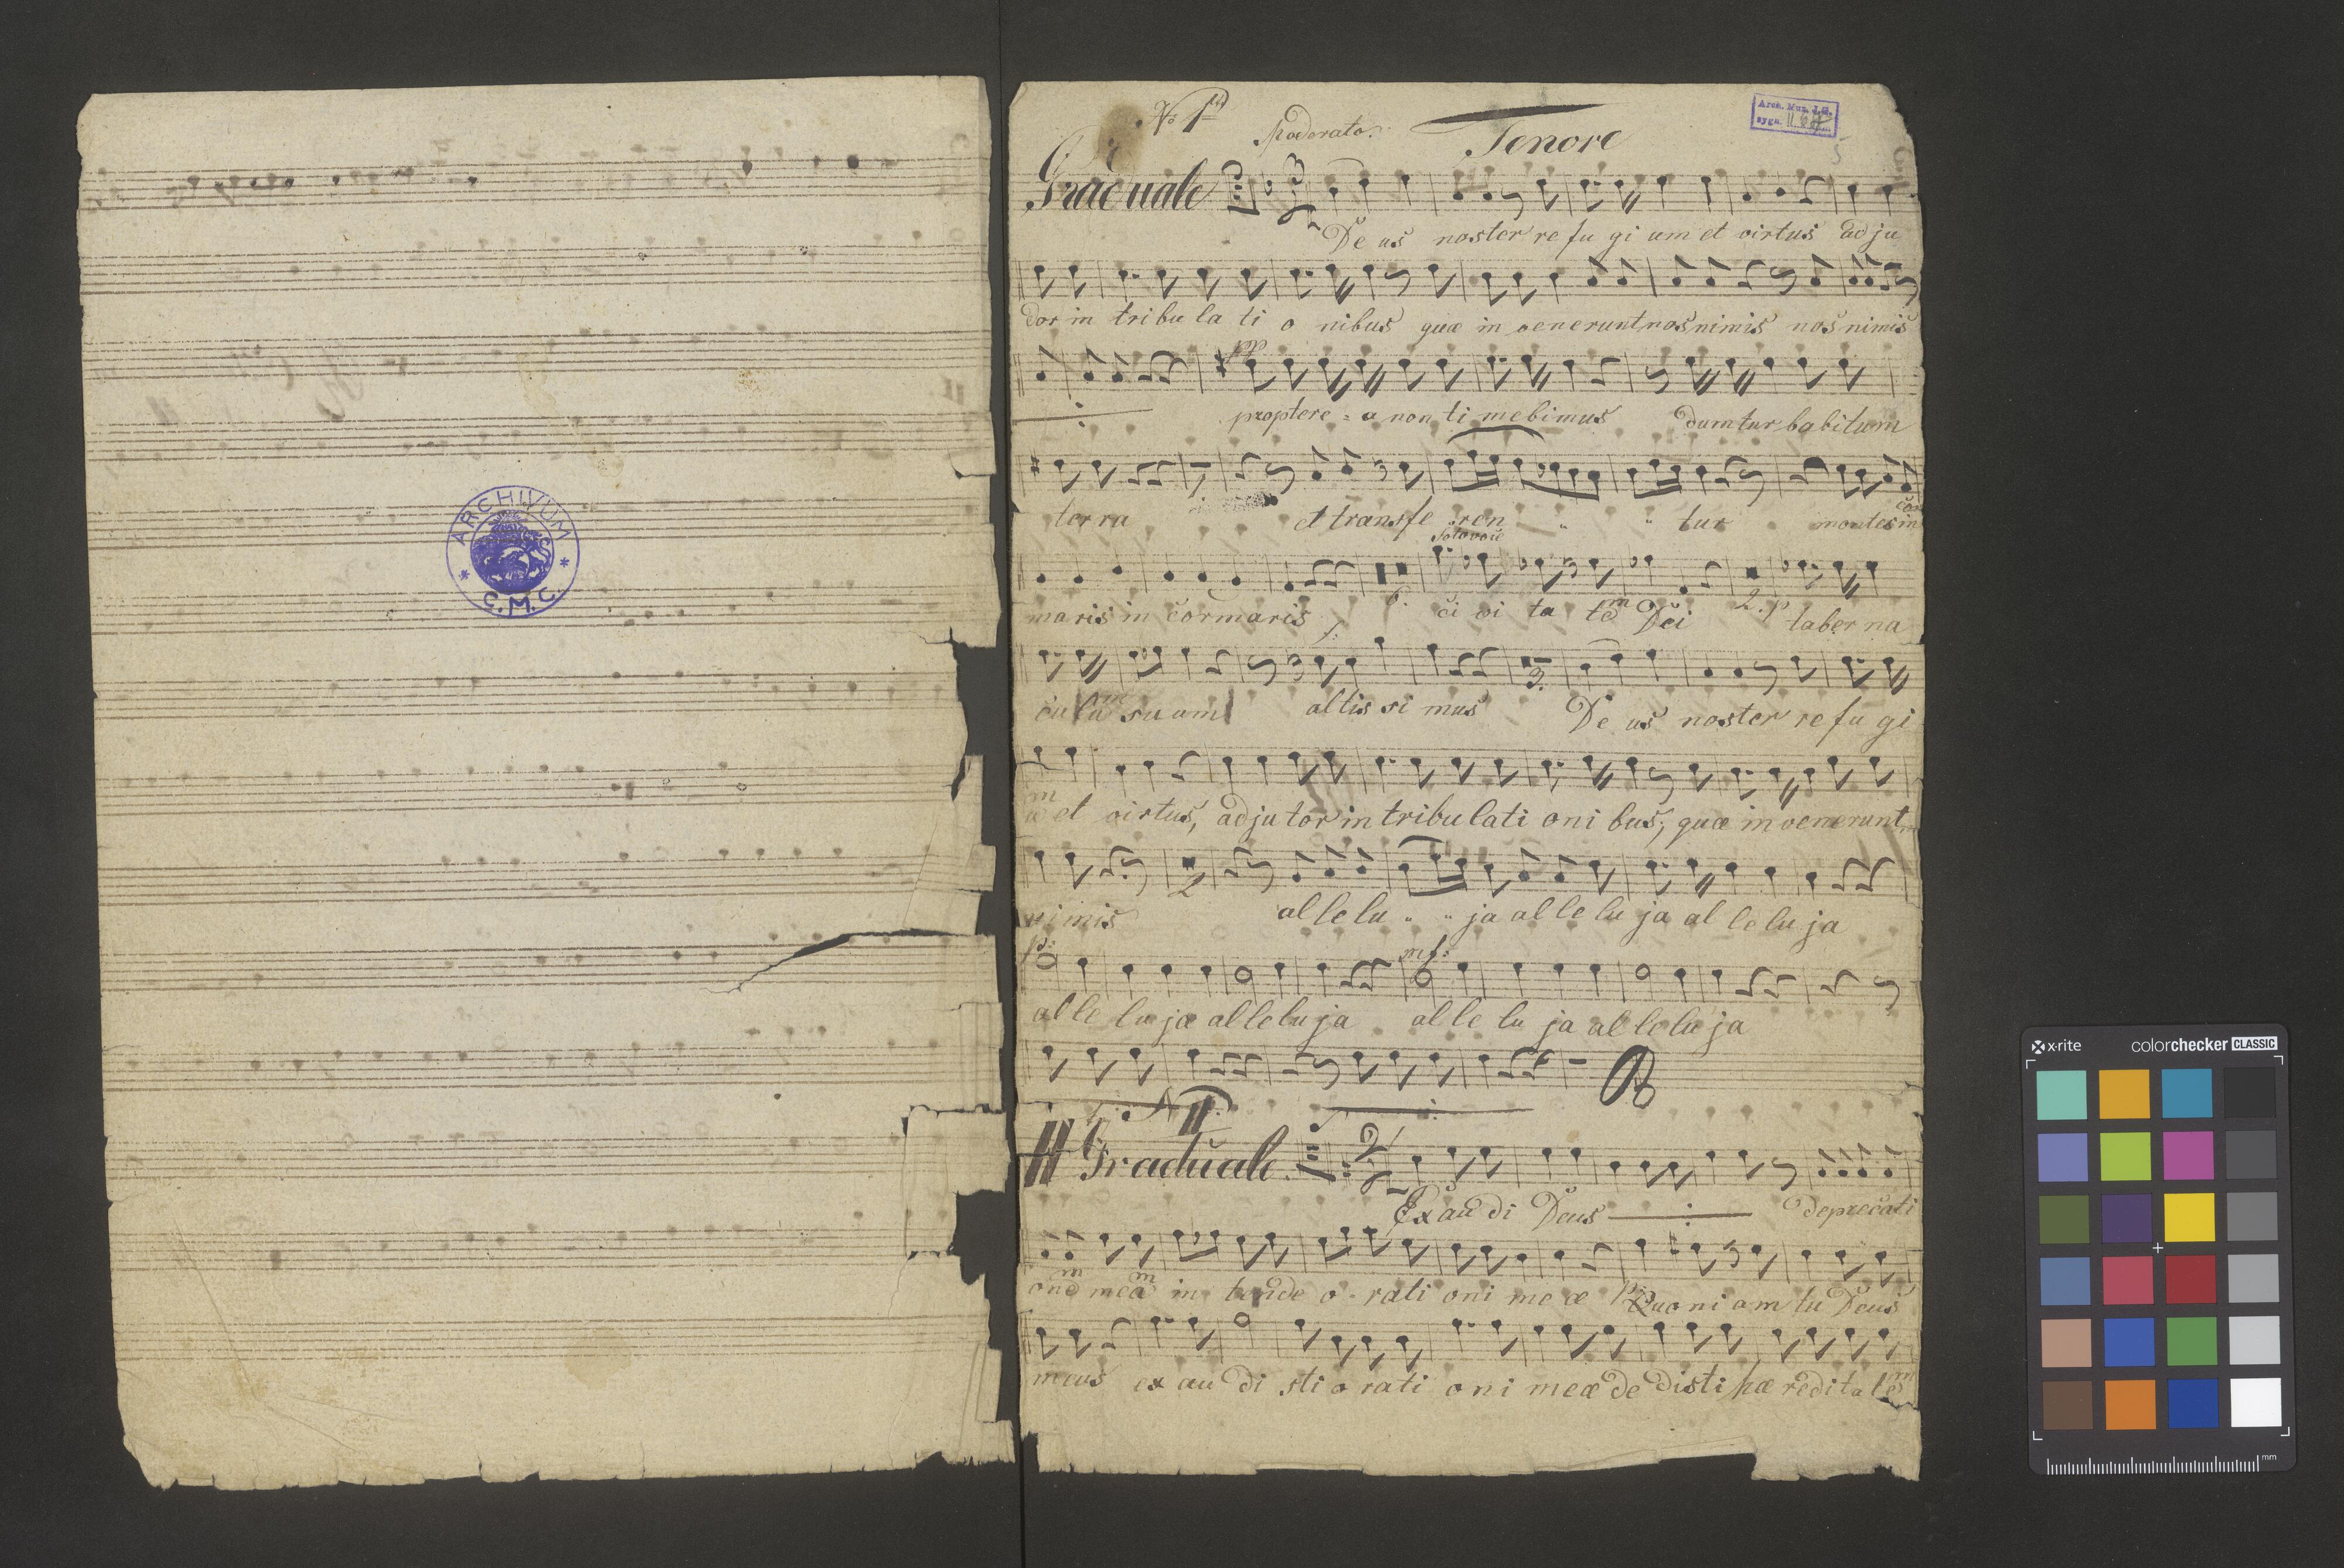 ARCHIVUM
C.M.C.
No 1
Moderato.
Tenore
Arch. Mus. J.G.
sygn. II.64
5
Graduale
De us noster re fu gi um et virtus ad ju
tor in tribu la ti o nibus quæ in venerunt nos nimis nos nimis
proptere = a non ti mebimus dum tur babitum
terra et transfe ren " " tur montes in cor
Solo voce
maris in cor maris 6. ci vi ta tem Dei 2. p taber na
f:
cu lum suam altis si mus 3. De us noster re fu gi
um et virtus, adjutor in tribu lati oni bus, quæ in venerunt
nimis 2 al le lu " " ja al le lu ja al le lu ja
p: mf:
al le lu ja al le lu ja al le lu ja al le lu ja
f: N II
II Graduale.
Exau di Deus deprecati
onem meam in tende o rati oni me æ Quo ni am tu Deus
meus ex au di sti o rati oni meæ de disti hæ redita tem
x·rite colorchecker CLASSIC
mm